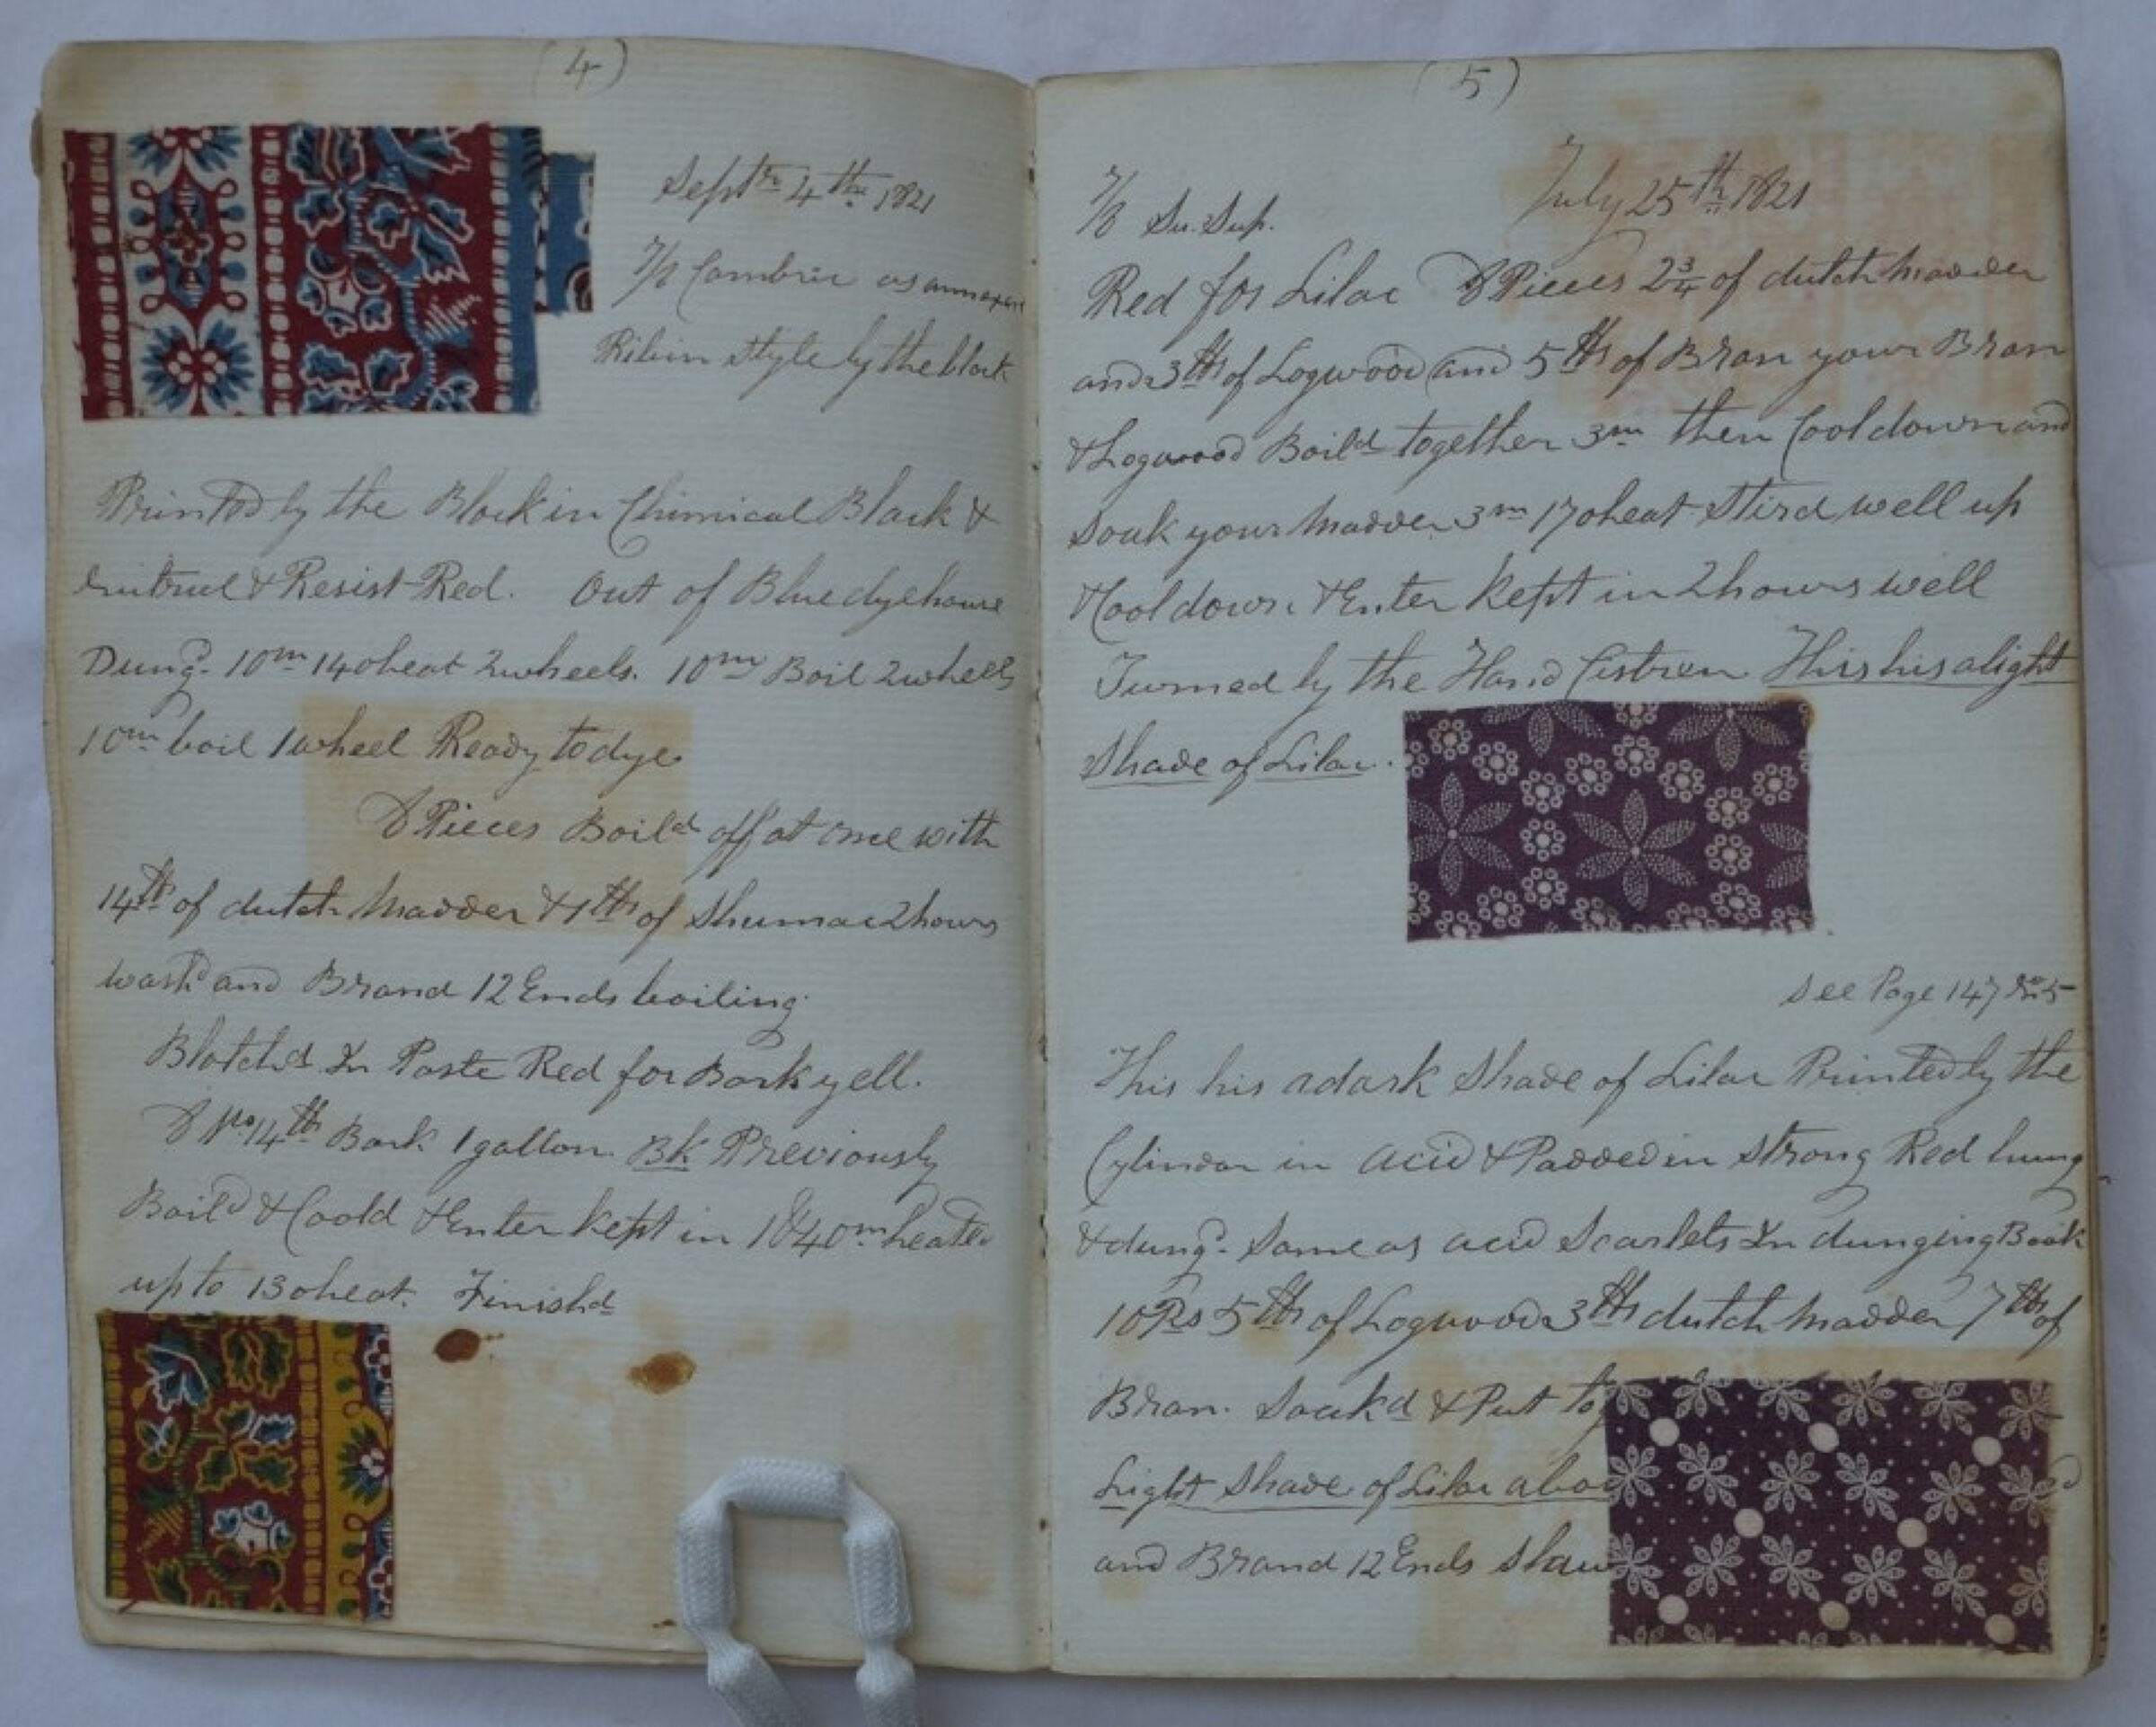 (4)
Septr 4th 1821
7/8 Cambric as annexed
Ribin style by the block
Printed by the Block in Chimical Black &
Resist Red. Out of Blue dyehouse
Dung'd 10m 140 heat 2 wheels. 10m Boil 2 wheels
10m boil 1 wheel Ready to dye.
Pieces Boild off at once with
14 lb of dutch Madder & 1 lb of Shumac 2 hours
wash'd and Brand 12 Ends boiling
Blotchd In Paste Red for Bark yell.
14 lb Bark 1 gallon. Bk Previously
Boild & Coold & Enter kept in 1 40m heated
up to 130 heat. Finishd
(5)
July 25th 1821
7/8 Su. Sup.
Red for Lilac Pieces 2 3/4 of dutch Madder
and 3 lbs of Logwood and 5 lbs of Bran your Bran
& Logwood Boild together 3m then Cool down and
soak your Madder 3m 170 heat Stird well up
& Cool down & Enter kept in 2 hours well
Turned by the Hand Cistren. This his a light
Shade of Lilac.
See Page 147 No 5
This his a dark Shade of Lilac Printed by the
Cylindar in acid & Padded in strong Red hung
& dung'd same as acid Scarlets In dunging Book
10 Ps 5 lbs of Logwood 3 lbs dutch Madder 7 lbs of
Bran. Soakd & Put to
Light Shade of Lilac abov
and Brand 12 Ends